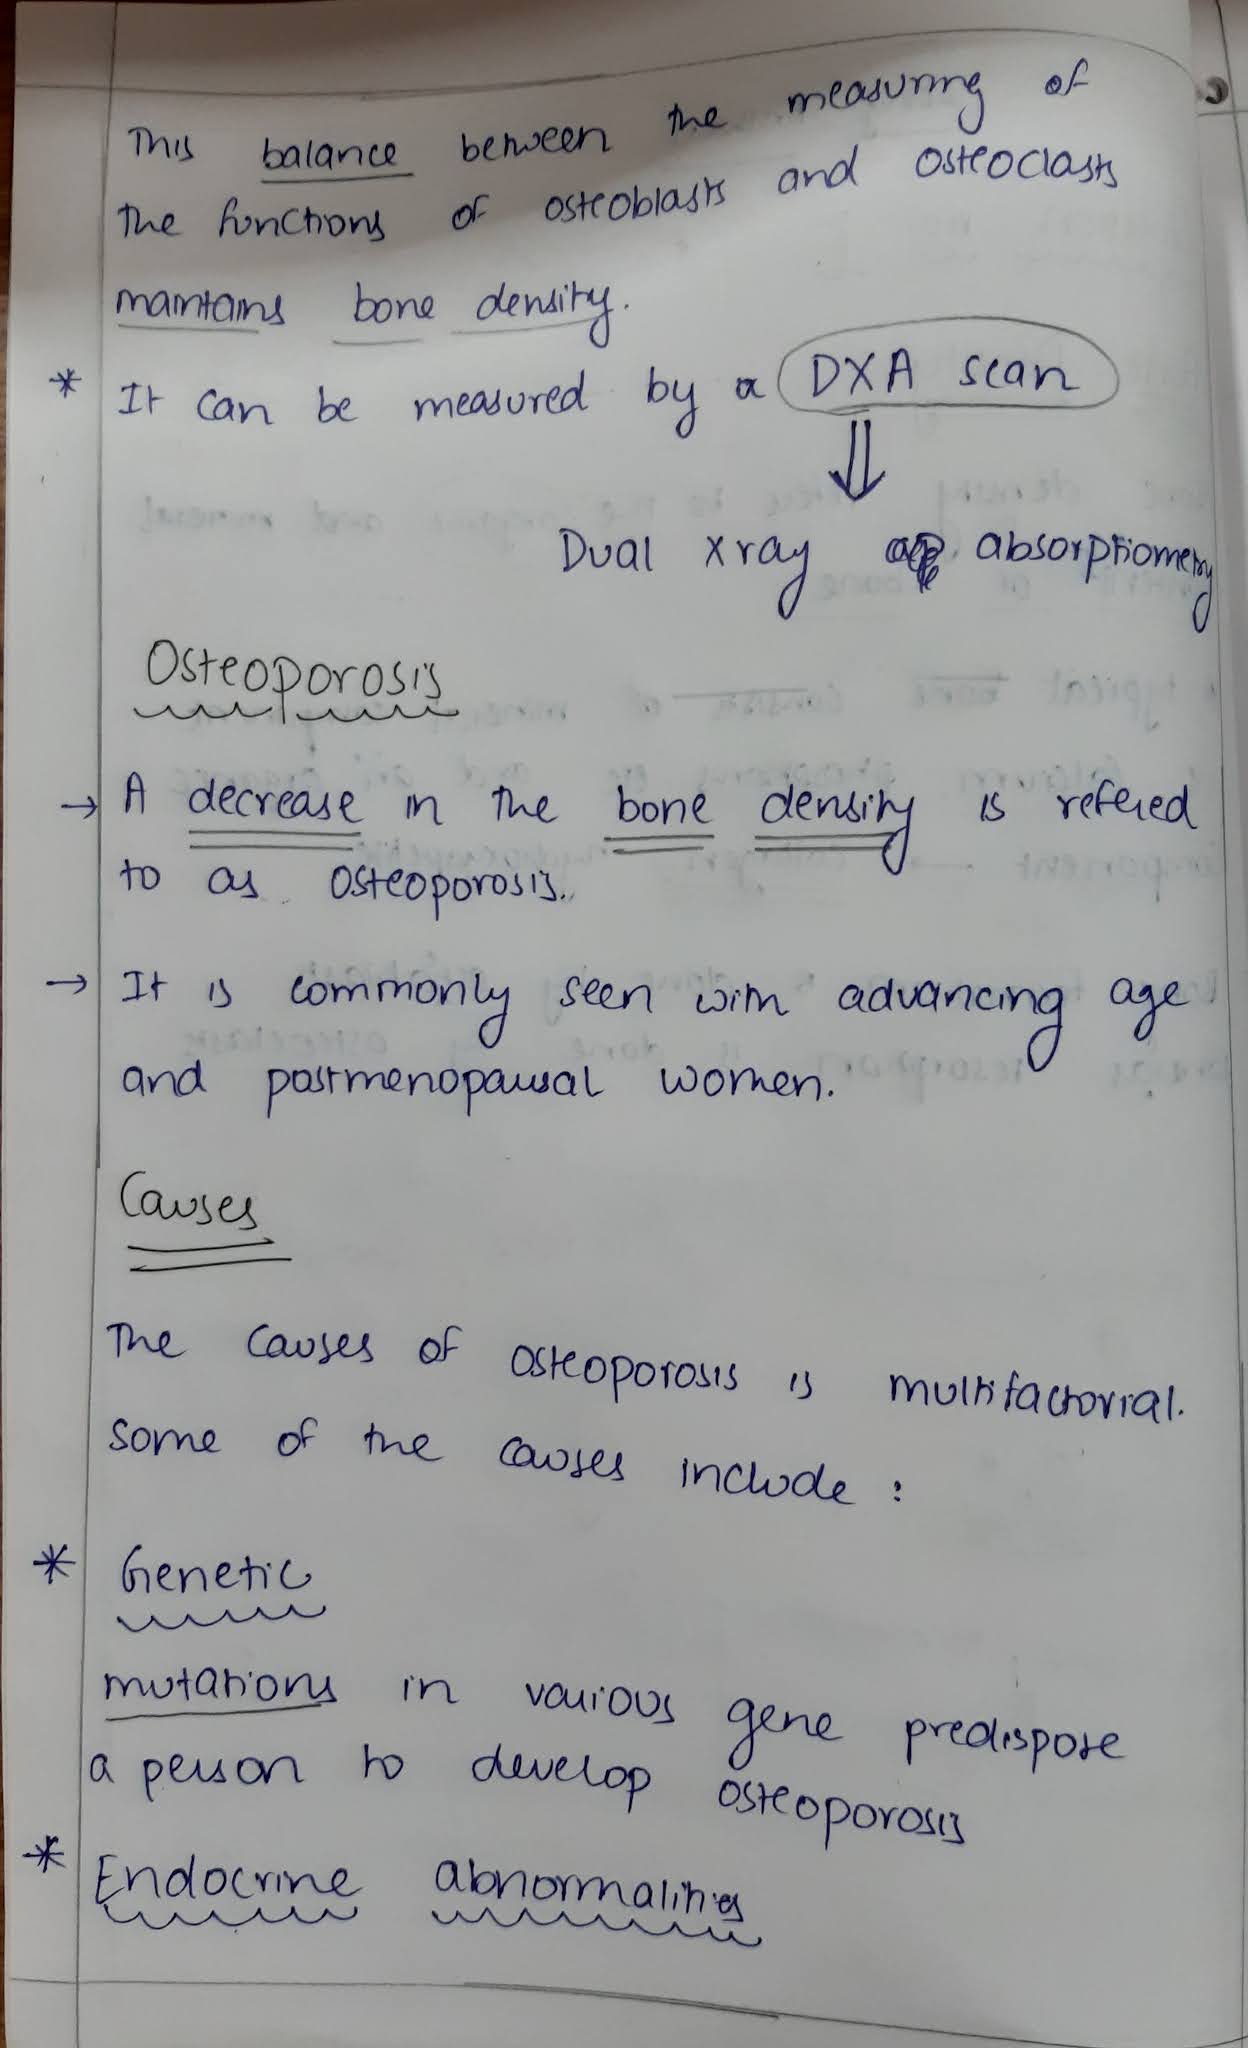 This balance between the measuring of
the functions of osteoblasts and osteoclasts
maintains bone density.
* It can be measured by a DXA scan
⇓
Dual xray absorptiometry
Osteoporosis
→ A decrease in the bone density is refered
to as osteoporosis.
→ It is commonly seen with advancing age
and postmenopausal women.
Causes
The causes of osteoporosis is multifactorial.
some of the causes include :
* Genetic
mutations in various gene predispose
a person to develop osteoporosis
* Endocrine abnormalities